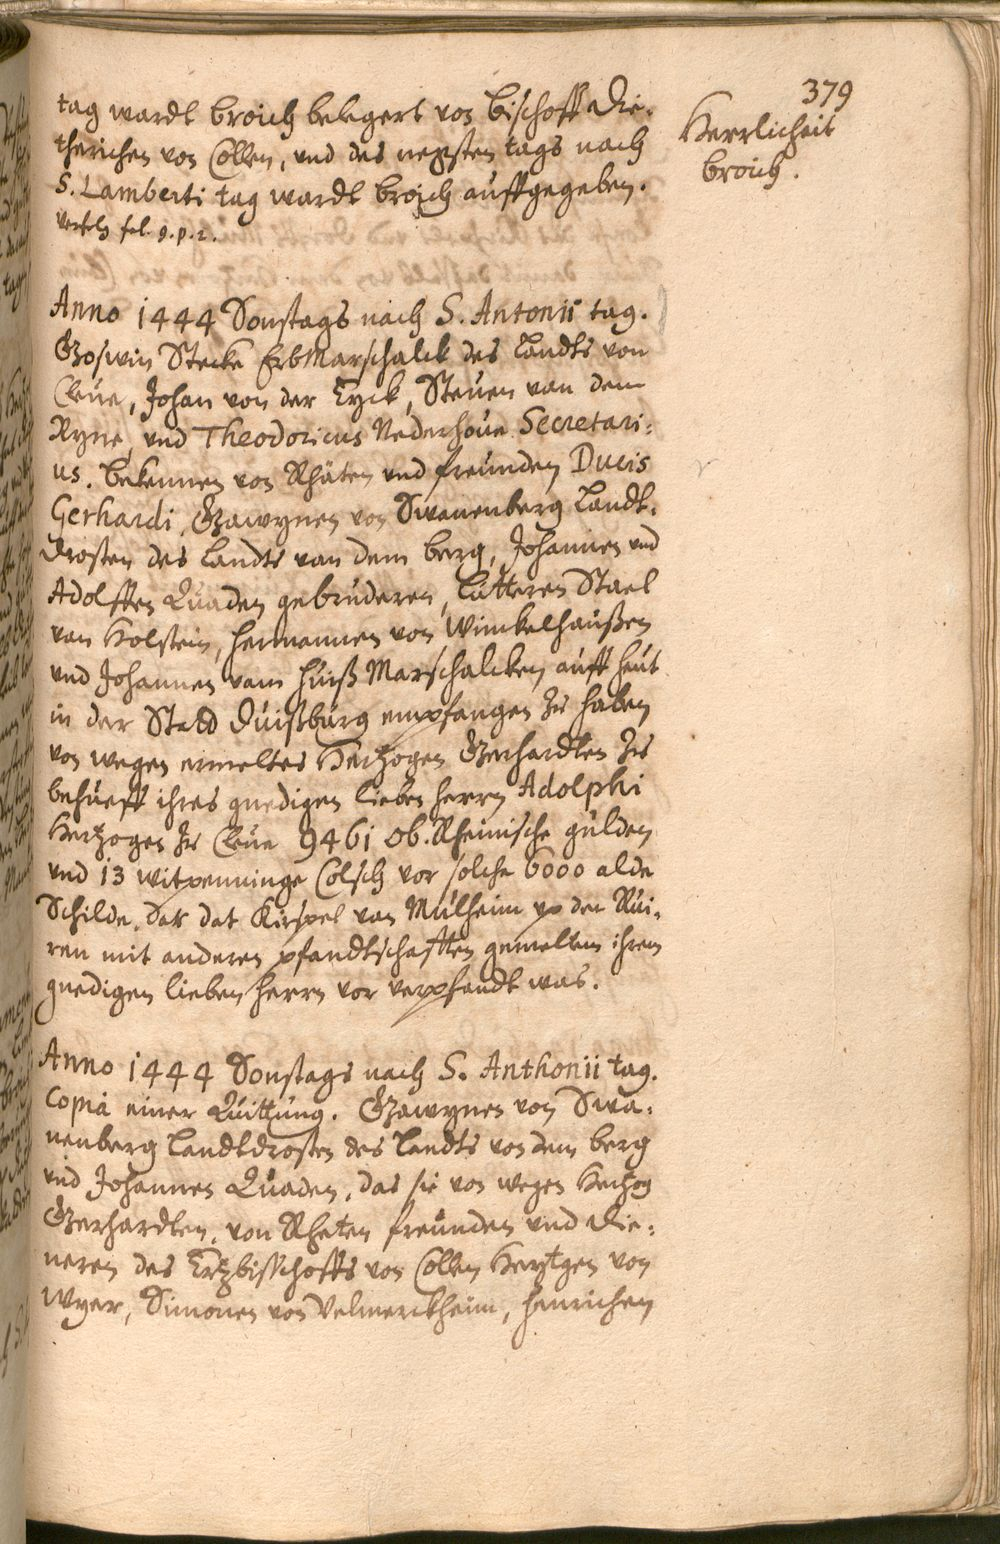 379
Herrlicheit
broich.
tag wardt broich belegert von Bischoff Die-
therichen von Cöllen, und des negsten tags nach
S. Lamberti tag wardt broich auffgegeben.
fol. 9. p. 2.
Anno 1444 Sonstags nach S. Antonii tag.
Goswin Stecke ErbMarschalck des Landts von
Cleüe, Johan von der Eyck, Steüen van dem
Ryne, und Theodoricus Nederhoüe Secretari:
us. bekennen von Rhäten und freünden Ducis
Gerhardi, Gawynen von Swanenberg Landt-
drosten des Landts van dem berg, Johannen und
Adolffen Quaden gebruderen, Lütteren Stael
van Holstein, Hermannen von Winckelhaußen
und Johannen vam Huiß Marschalcken auff heut
in der Stadt Duißburg empfangen zu haben
von wegen ermeltes Hertzogen Gerhardten zu
behüeff ihres gnedigen lieben Herrn Adolphi
Hertzogen zu Cleüe 9461 ob. Rheinische gülden
und 13 witpenninge Colsch vor solche 6000 alde
Schilde, dar dat Kirspel van Mülheim up der Rüi-
ren mit anderen pfandtschafften gemeltem ihrem
gnedigen lieben Herrn vor verpfandt was.
Anno 1444 Sonstags nach S. Anthonii tag.
Copia einer Quittung. Gawynen von Swa-
nenberg Landtdrosten des Landts von dem berg
und Johannen Quaden, das sie von wegen Hertzog
Gerhardten, von Rheten freünden und die:
neren des Ertzbisschoffs von Cöllen Heytgen von
Wyer, Simonen von Velmerckheim, Henrichen